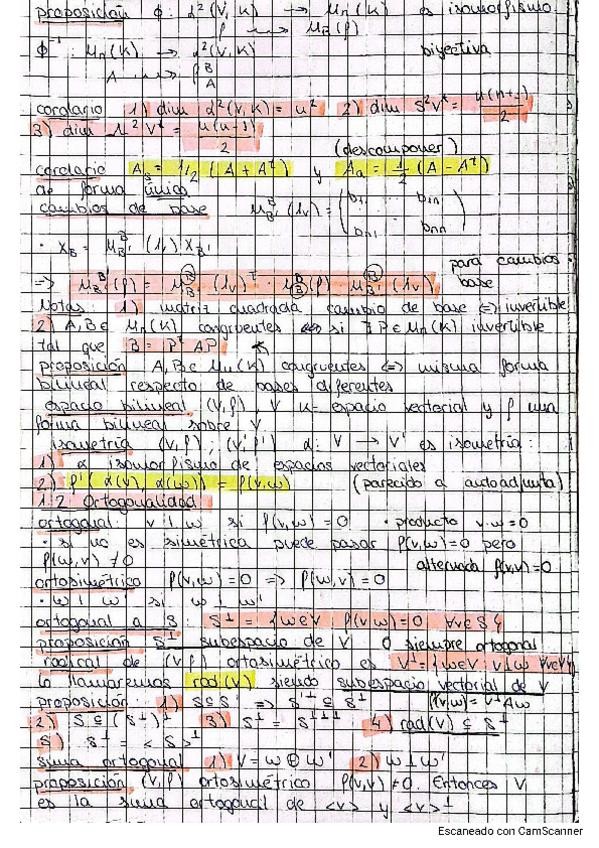 proposición φ: L²(V,K) → Mn(K) es isomorfismo
ρ ⇝ M_B(ρ)
φ⁻¹: Mn(K) → L²(V,K) biyectiva
A ⇝ ρ_A^B
corolario 1) dim L²(V,K) = n² 2) dim S²V* = n(n+1)/2
3) dim Λ²V* = n(n-1)/2
(descomponer)
corolario A_s = 1/2 (A + Aᵗ) y A_a = 1/2 (A - Aᵗ)
de forma única
cambios de base M_B'^B (1v) = (b11 ... b1n ... bn1 ... bnn)
· X_B = M_B'^B (1v) X_B'
para cambios
=> M_B'(ρ) = M_B'^B (1v)ᵗ · M_B(ρ) M_B'^B (1v) base
Notas: 1) matriz cuadrada cambio de base <=> invertible
2) A,B ∈ Mn(K) congruentes si ∃ P ∈ Mn(K) invertible
tal que B = Pᵗ A P
proposición A, B ∈ Mn(K) congruentes <=> misma forma
bilineal respecto de bases diferentes
espacio bilineal (V,ρ), V K-espacio vectorial y ρ una
forma bilineal sobre V
isometría (V,ρ), (V',ρ') α: V → V' es isometría:
1) α isomorfismo de espacios vectoriales
2) ρ'(α(v), α(w)) = ρ(v,w) (parecido a autoadjunta)
1.2 Ortogonalidad
ortogonal: v ⊥ w si ρ(v,w) = 0 · producto v·w = 0
· si no es simétrica puede pasar ρ(v,w) = 0 pero
ρ(w,v) ≠ 0 alternada ρ(v,v) = 0
ortosimétrico ρ(v,w) = 0 => ρ(w,v) = 0
· W ⊥ W' si w ⊥ w'
ortogonal a S: S^⊥ = {w ∈ V ρ(v,w) = 0 ∀v ∈ S}
proposición S^⊥ subespacio de V. 0 siempre ortogonal
radical de (V,ρ) ortosimétrico es V^⊥ = {w ∈ V: v ⊥ w ∀v ∈ V}
lo llamaremos rad(V) siendo subespacio vectorial de V
proposición: 1) S ⊆ S' => S'^⊥ ⊆ S^⊥ ρ(v,w) = vᵗAw
2) S ⊆ (S^⊥)^⊥ 3) S^⊥ = S^⊥⊥⊥ 4) rad(V) ⊆ S^⊥
5) S^⊥ = <S>^⊥
suma ortogonal 1) V = W ⊕ W' 2) W ⊥ W'
proposición (V,ρ) ortosimétrico ρ(v,v) ≠ 0. Entonces V
es la suma ortogonal de <v> y <v>^⊥
Escaneado con CamScanner